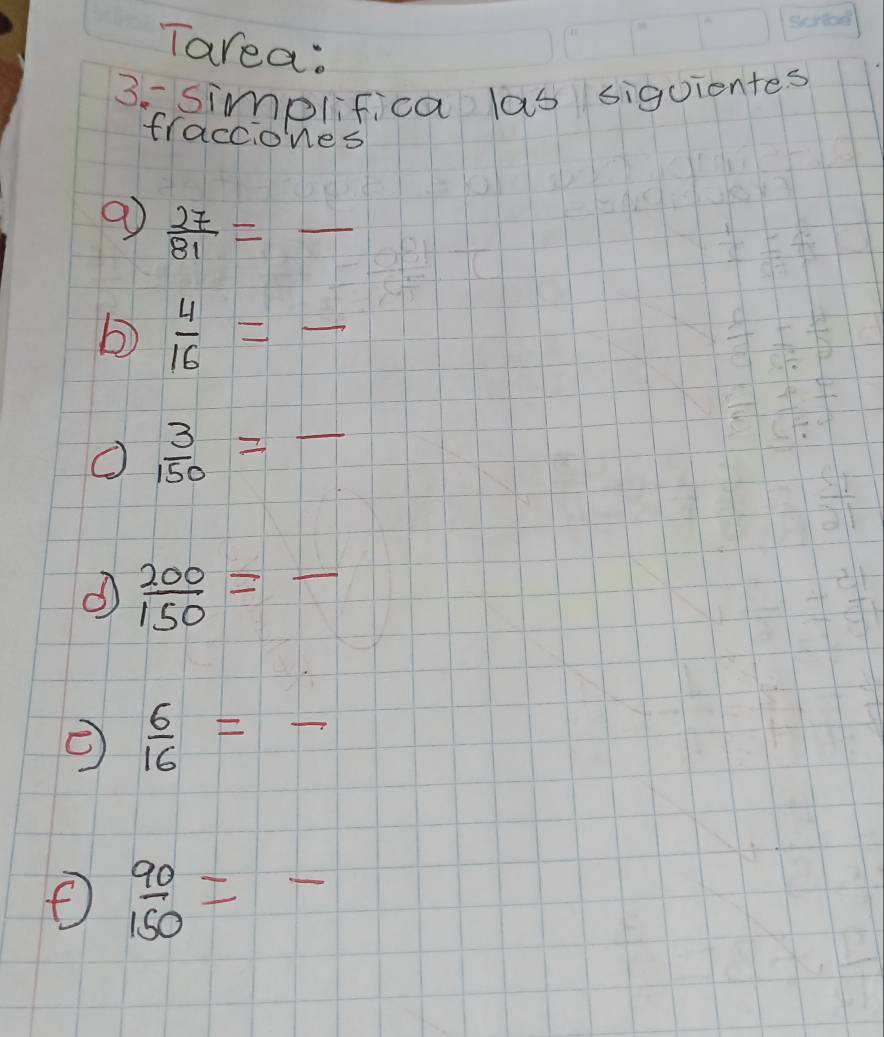 scribe
Tarea:
3.- Simplifica las siguientes
fracciones
a) 27/81 = —
b) 4/16 = —
c) 3/150 = —
d) 200/150 = —
e) 6/16 = —
f) 90/150 = —